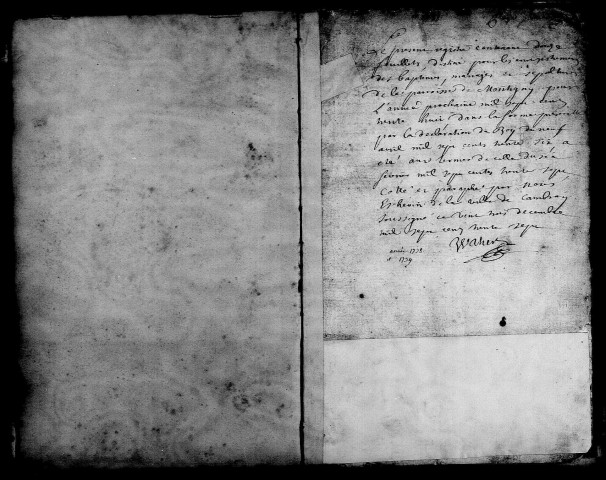 Le present registre contenant douze
feuillets, destiné pour les enregistremens
des baptemes, mariages et sepultures
de la paroisse de Montigny pour
l'année prochaine mil sept cent
trente huit dans la forme prescrite
par la declaration du Roy du neuf
avril mil sept cents trente six a
eté aux termes de celle du
fevrier mil sept cents trente sept
cotté et paraphé par nous
Eschevin de la ville de Cambray
soussigné ce vingt trois decembre
mil sept cent trente sept
année 1738
et 1739